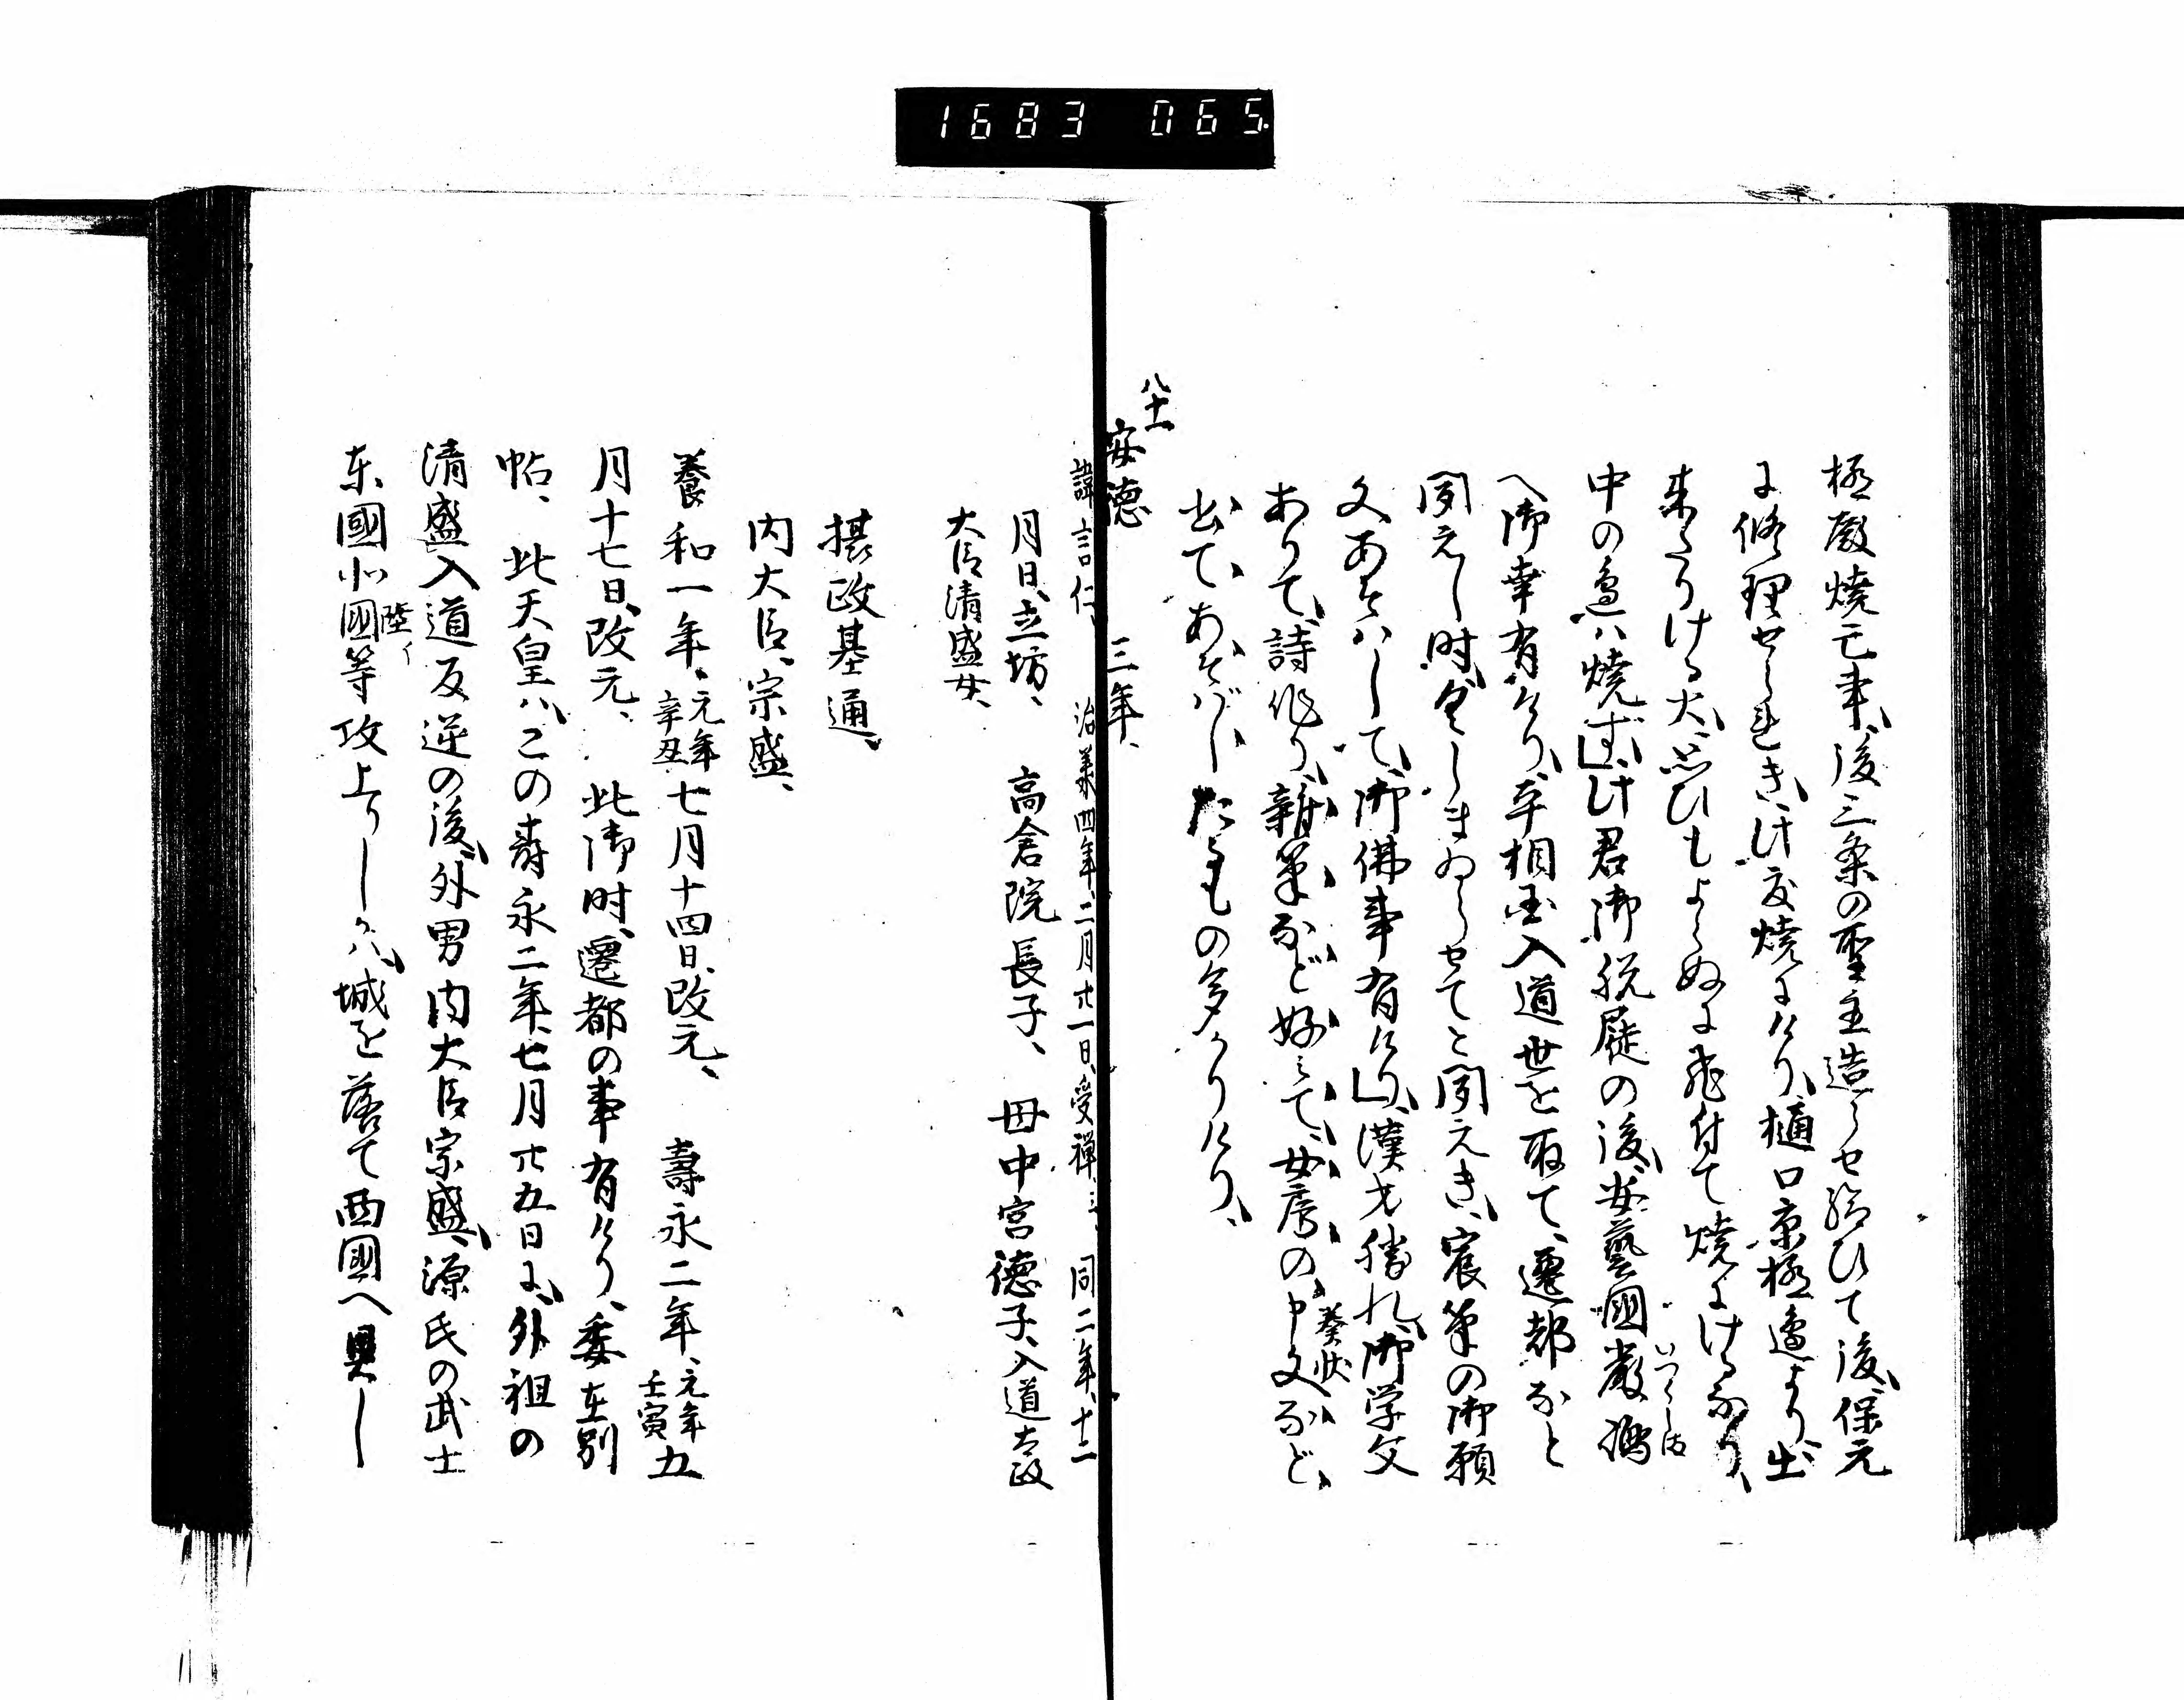 1683 065.
極殿焼亡事、後三条の聖主造らせ給ひて後、保元
に修理せられき、此度焼にけり、樋口京極邊より出
来たりける火、思ひもよらぬに飛付て焼にけるなり、
中の烏ハ焼ず」此君御脱屣の後、安藝國嚴嶋
いつくしま
へ御幸有けり、平相国入道世を取て、遷都なと
聞えし時、くしまゐらせてと聞えき、宸筆の御願
文あそハして、御佛事有けり」漢才勝れ、御学文
ありて、詩作り、雜筆など好ミて、女房の申文など
奏状
出て、あそばしたるもの多かりけり、
八十一
安徳 三年、
諱言仁、 治承四年、二月廿一日、受禅、三、 同二年、十二
月日、立坊、 高倉院長子、 母中宮徳子、入道太政
大臣清盛女、
摂政基通、
内大臣、宗盛、
養和一年、元年辛丑七月十四日、改元、 壽永二年、元年壬寅五
月十七日、改元、 此御時、遷都の事有けり、委在別
帖、 此天皇ハ、この壽永二年、七月廿五日に、外祖の
清盛入道反逆の後、外男内大臣宗盛、源氏の武士
東國北國等攻上りしかハ、城を落て西國へ具し
陸イ